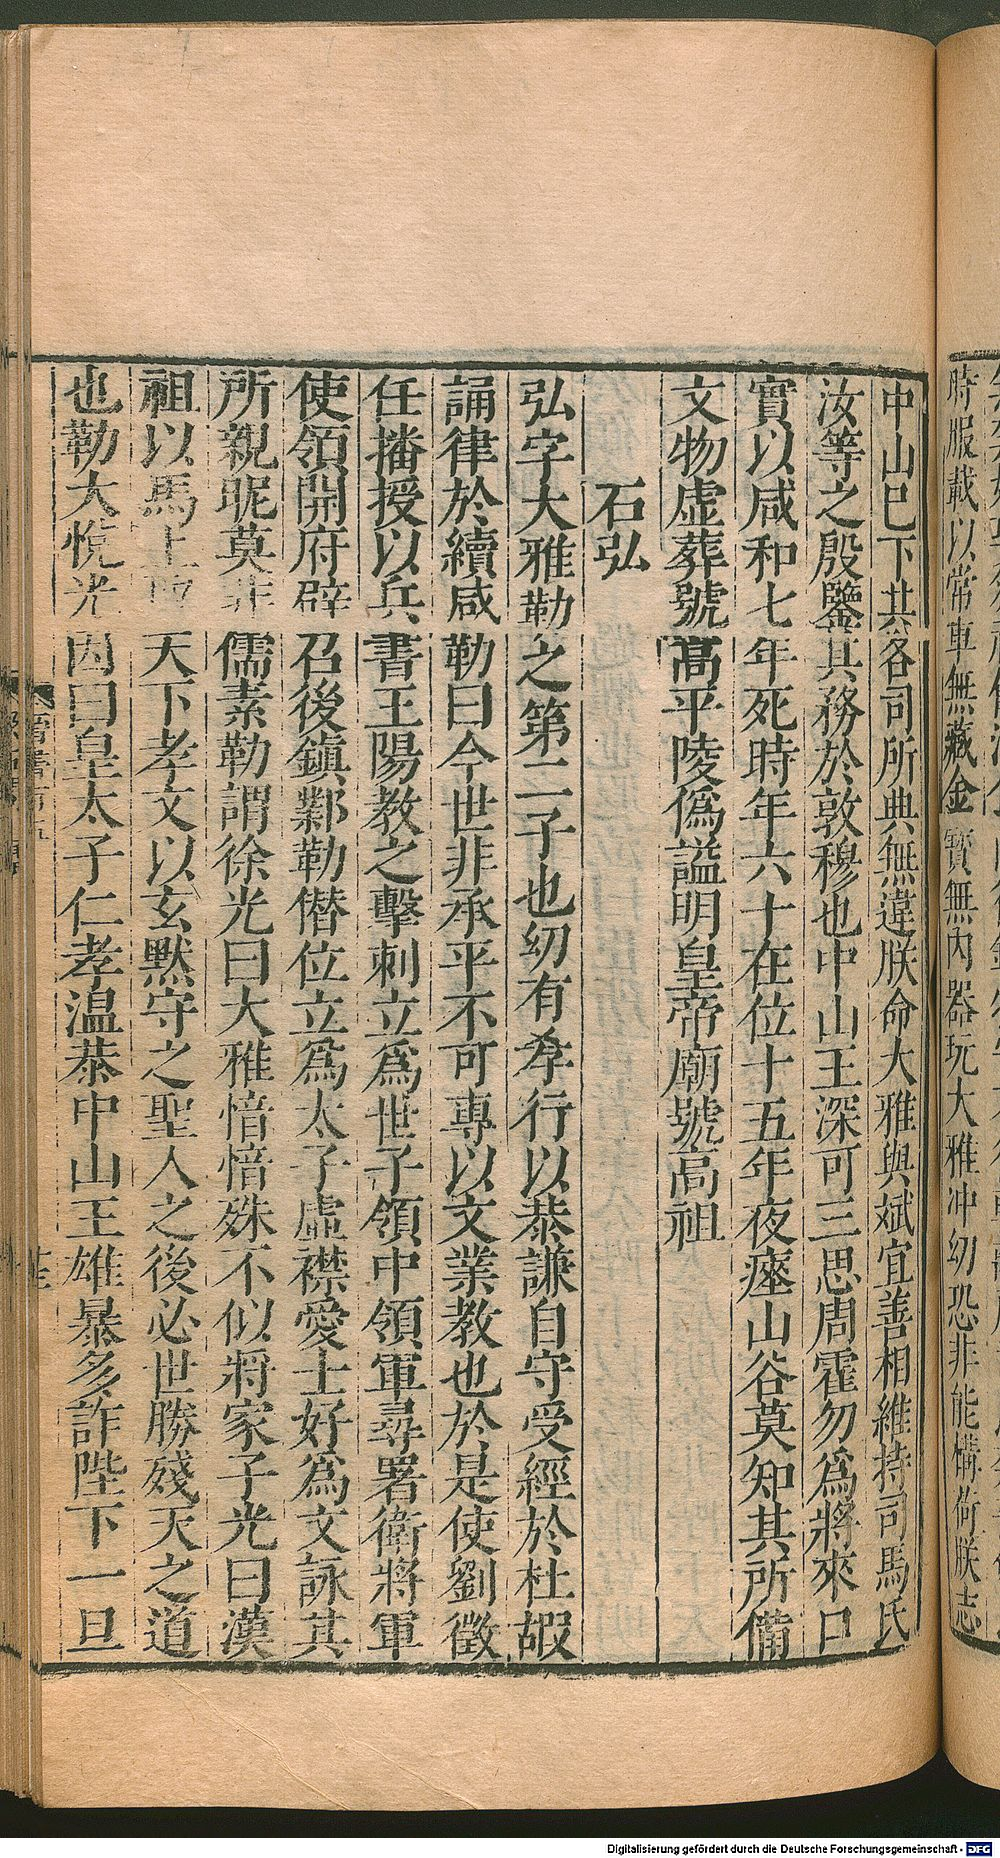 時服載以常車無藏金寶無內器玩大雅冲幼恐非能構荷朕志
中山已下其各司所典無違朕命大雅與斌宜善相維持司馬氏
汝等之殷鑒其務於敦穆也中山王深可三思周霍勿爲將來口
實以咸和七年死時年六十在位十五年夜瘞山谷莫知其所備
文物虛葬號高平陵僞謚明皇帝廟號高祖
石弘
弘字大雅勒之第二子也幼有孝行以恭謙自守受經於杜嘏
誦律於續咸勒曰今世非承平不可專以文業教也於是使劉徵
任播授以兵書王陽教之擊刺立爲世子領中領軍尋署衛將軍
使領開府辟召後鎮鄴勒僭位立爲太子虛襟愛士好爲文詠其
所親昵莫非儒素勒謂徐光曰大雅愔愔殊不似將家子光曰漢
祖以馬上取天下孝文以玄默守之聖人之後必世勝殘天之道
也勒大悅光因曰皇太子仁孝温恭中山王雄暴多詐陛下一旦
Digitalisierung gefördert durch die Deutsche Forschungsgemeinschaft - DFG